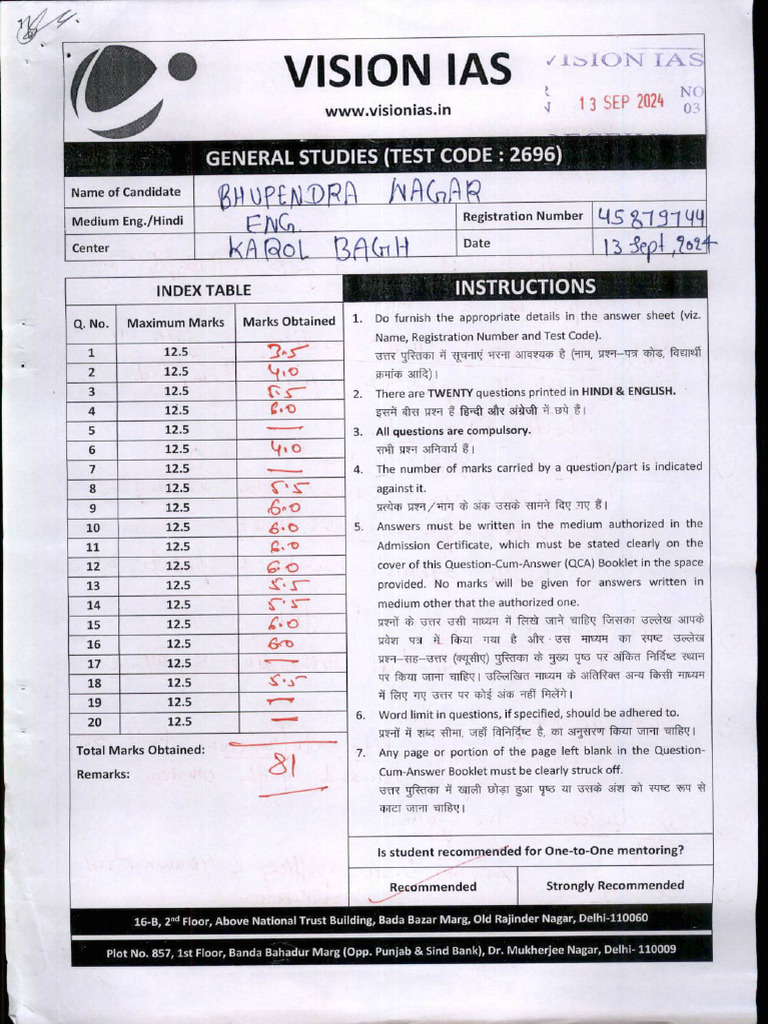 VISION IAS
www.visionias.in
VISION IAS
13 SEP 2024
NO
03
GENERAL STUDIES (TEST CODE : 2696)
Name of Candidate BHUPENDRA NAGAR
Medium Eng./Hindi ENG. Registration Number 45879744
Center KAROL BAGH Date 13 Sept, 2024
INDEX TABLE
Q. No. Maximum Marks Marks Obtained
1 12.5 3.5
2 12.5 4.0
3 12.5 5.5
4 12.5 6.0
5 12.5 —
6 12.5 4.0
7 12.5 —
8 12.5 5.5
9 12.5 6.0
10 12.5 6.0
11 12.5 6.0
12 12.5 6.0
13 12.5 5.5
14 12.5 5.5
15 12.5 6.0
16 12.5 60
17 12.5 —
18 12.5 5.5
19 12.5 —
20 12.5 —
Total Marks Obtained: 81
Remarks:
INSTRUCTIONS
1. Do furnish the appropriate details in the answer sheet (viz.
Name, Registration Number and Test Code).
उत्तर पुस्तिका में सूचनाएं भरना आवश्यक है (नाम, प्रश्न–पत्र कोड, विद्यार्थी
क्रमांक आदि)।
2. There are TWENTY questions printed in HINDI & ENGLISH.
इसमें बीस प्रश्न हैं हिन्दी और अंग्रेजी में छपे हैं।
3. All questions are compulsory.
सभी प्रश्न अनिवार्य हैं।
4. The number of marks carried by a question/part is indicated
against it.
प्रत्येक प्रश्न/भाग के अंक उसके सामने दिए गए हैं।
5. Answers must be written in the medium authorized in the
Admission Certificate, which must be stated clearly on the
cover of this Question-Cum-Answer (QCA) Booklet in the space
provided. No marks will be given for answers written in
medium other that the authorized one.
प्रश्नों के उत्तर उसी माध्यम में लिखे जाने चाहिए जिसका उल्लेख आपके
प्रवेश पत्र में किया गया है और उस माध्यम का स्पष्ट उल्लेख
प्रश्न–सह–उत्तर (क्यूसीए) पुस्तिका के मुख्य पृष्ठ पर अंकित निर्दिष्ट स्थान
पर किया जाना चाहिए। उल्लिखित माध्यम के अतिरिक्त अन्य किसी माध्यम
में लिए गए उत्तर पर कोई अंक नहीं मिलेंगे।
6. Word limit in questions, if specified, should be adhered to.
प्रश्नों में शब्द सीमा, जहाँ विनिर्दिष्ट है, का अनुसरण किया जाना चाहिए।
7. Any page or portion of the page left blank in the Question-
Cum-Answer Booklet must be clearly struck off.
उत्तर पुस्तिका में खाली छोड़ा हुआ पृष्ठ या उसके अंश को स्पष्ट रूप से
काटा जाना चाहिए।
Is student recommended for One-to-One mentoring?
Recommended Strongly Recommended
16-B, 2nd Floor, Above National Trust Building, Bada Bazar Marg, Old Rajinder Nagar, Delhi-110060
Plot No. 857, 1st Floor, Banda Bahadur Marg (Opp. Punjab & Sind Bank), Dr. Mukherjee Nagar, Delhi- 110009